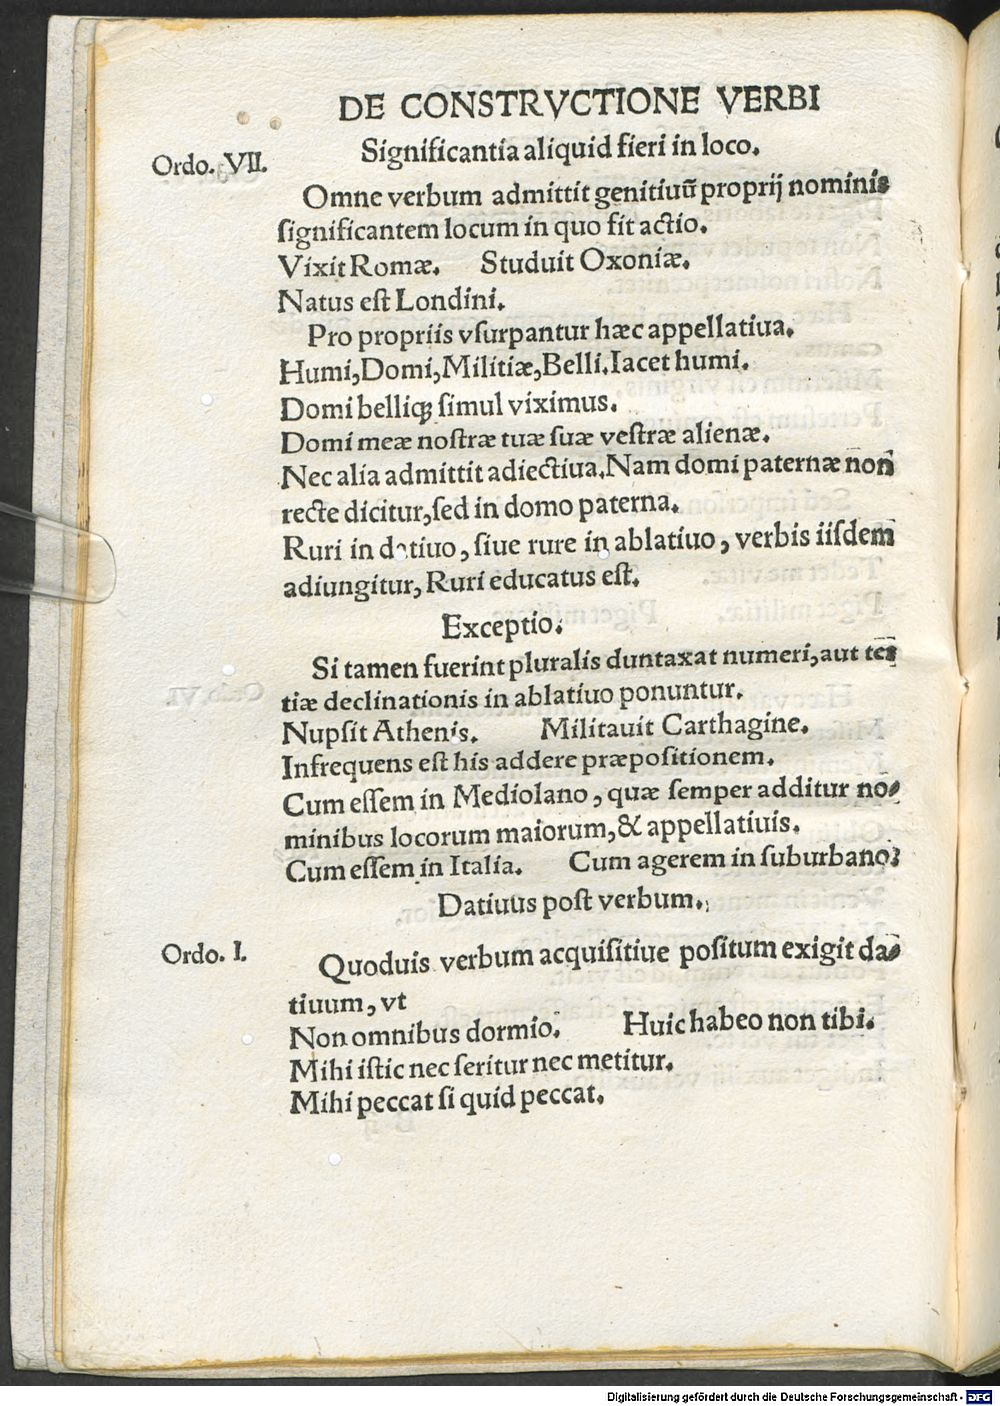 DE CONSTRVCTIONE VERBI
Significantia aliquid fieri in loco.
Ordo. VII.
Omne verbum admittit genitiuũ proprij nominis
ſignificantem locum in quo fit actio.
Vixit Romæ. Studuit Oxoniæ.
Natus eſt Londini.
Pro propriis vſurpantur hæc appellatiua.
Humi, Domi, Militiæ, Belli. Iacet humi.
Domi belliqꝫ ſimul viximus.
Domi meæ noſtræ tuæ ſuæ veſtræ alienæ.
Nec alia admittit adiectiua. Nam domi paternæ non
recte dicitur, ſed in domo paterna.
Ruri in datiuo, ſiue rure in ablatiuo, verbis iiſdem
adiungitur, Ruri educatus eſt.
Exceptio.
Si tamen fuerint pluralis duntaxat numeri, aut ter
tiæ declinationis in ablatiuo ponuntur.
Nupſit Athenis. Militauit Carthagine.
Infrequens eſt his addere præpoſitionem.
Cum eſſem in Mediolano, quæ ſemper additur no⸗
minibus locorum maiorum, & appellatiuis.
Cum eſſem in Italia. Cum agerem in ſuburbano.
Datiuus poſt verbum.
Ordo. I.
Quoduis verbum acquiſitiue poſitum exigit da⸗
tiuum, vt
Non omnibus dormio. Huic habeo non tibi.
Mihi iſtic nec ſeritur nec metitur.
Mihi peccat ſi quid peccat.
Digitalisierung gefördert durch die Deutsche Forschungsgemeinschaft - DFG